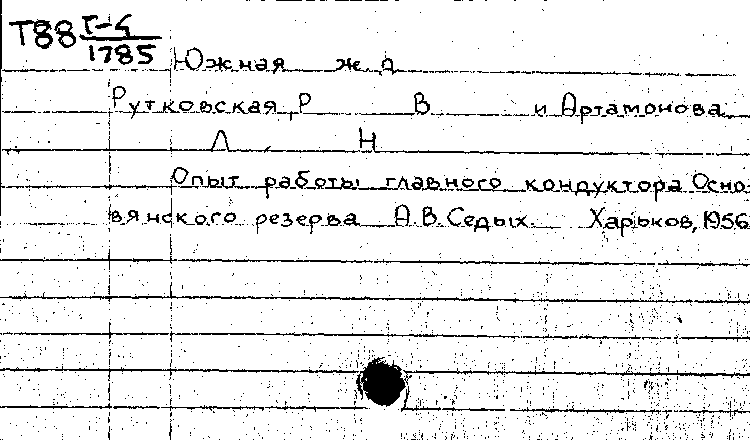 Т88 Г-5
1785
Южная ж. д
Рутковская, Р В и Артамонова
Л. Н
Опыт работы главного кондуктора Осно-
вянского резерва А.В.Седых. Харьков, 1956